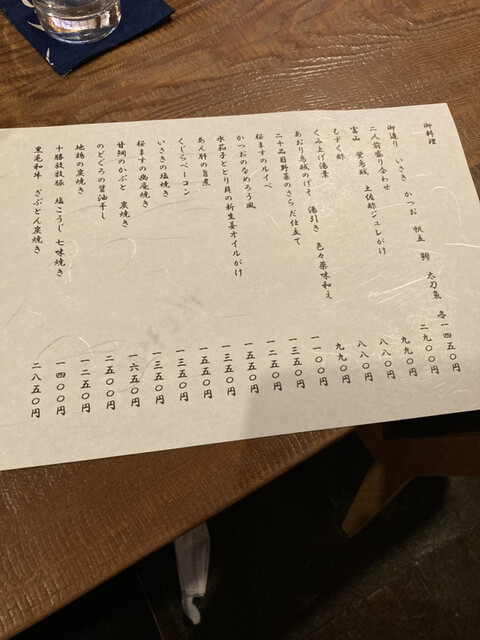 御料理
御造り いさき かつお 帆立 太刀魚 各一四五〇円
二人前盛り合わせ 二九〇〇円
富山 蛍烏賊 土佐酢ジュレがけ 九九〇円
もずく酢 八八〇円
くみ上げ湯葉 八八〇円
あおり烏賊のげそ 湯引き 色々薬味和え 九九〇円
二十品目野菜のさらだ仕立て 一一〇〇円
桜ますのルイベ 一三五〇円
かつおのなめろう風 一二五〇円
水茄子ととり貝の新生姜オイルがけ 一五五〇円
あん肝の旨煮 一三五〇円
くじらベーコン 一五五〇円
いさきの塩焼き 一三五〇円
桜ますの幽庵焼き 一三五〇円
甘鯛のかぶと 炭焼き 一六五〇円
のどぐろの醤油干し 二五〇〇円
地鶏の炭焼き 一二五〇円
十勝放牧豚 塩こうじ 七味焼き 一四〇〇円
黒毛和牛 ざぶとん炭焼き 二八五〇円